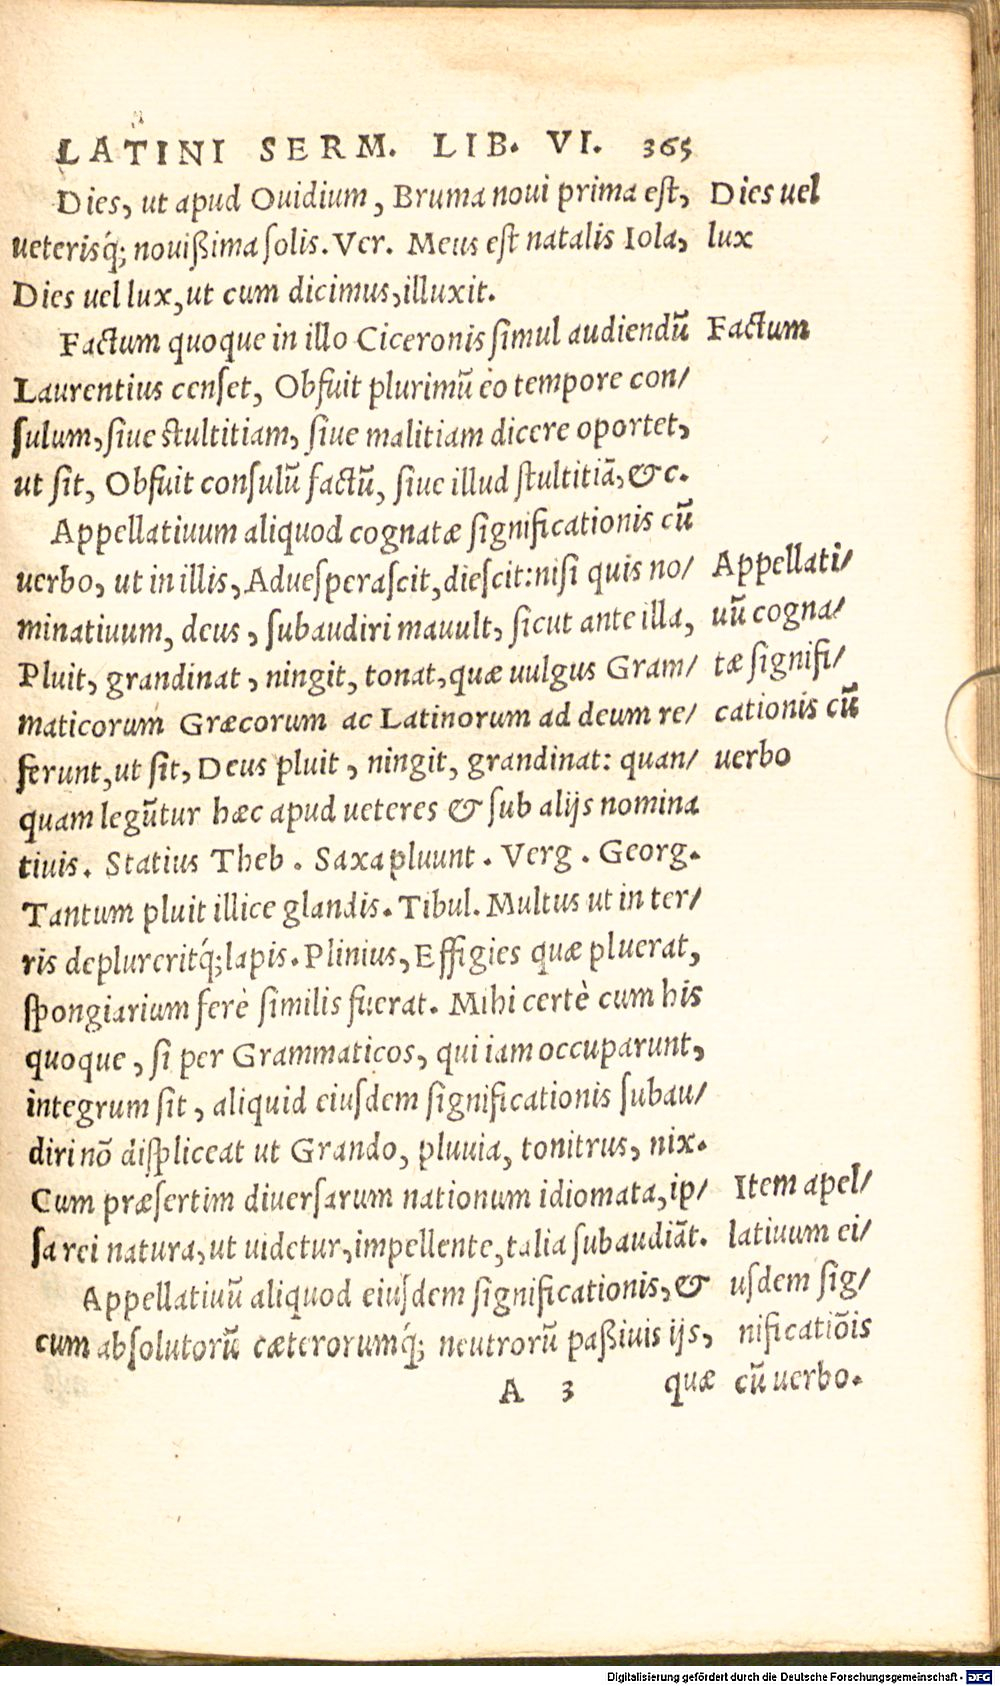 LATINI SERM. LIB. VI. 365
Dies, ut apud Ouidium, Bruma noui prima est,
ueterisq́; nouißima solis. Ver. Meus est natalis Iola,
Dies uel lux, ut cum dicimus, illuxit.
Factum quoque in illo Ciceronis simul audiendũ
Laurentius censet, Obfuit plurimũ eo tempore con/
sulum, siue stultitiam, siue malitiam dicere oportet,
ut sit, Obfuit consulũ factũ, siue illud stultitiã, & c.
Appellatiuum aliquod cognatæ significationis cũ
uerbo, ut in illis, Aduesperascit, diescit: nisi quis no/
minatiuum, deus, subaudiri mauult, sicut ante illa,
Pluit, grandinat, ningit, tonat, quæ uulgus Gram/
maticorum Græcorum ac Latinorum ad deum re/
ferunt, ut sit, Deus pluit, ningit, grandinat: quan/
quam legũtur hæc apud ueteres & sub alijs nomina
tiuis. Statius Theb. Saxa pluunt. Verg. Georg.
Tantum pluit illice glandis. Tibul. Multus ut in ter/
ris deplureritq́; lapis. Plinius, Effigies quæ pluerat,
spongiarium ferè similis fuerat. Mihi certè cum his
quoque, si per Grammaticos, qui iam occuparunt,
integrum sit, aliquid eiusdem significationis subau/
diri nõ displiceat ut Grando, pluuia, tonitrus, nix.
Cum præsertim diuersarum nationum idiomata, ip/
sa rei natura, ut uidetur, impellente, talia subaudiãt.
Appellatiuũ aliquod eiusdem significationis, &
cum absolutorũ cæterorumq́; neutrorũ paßiuis ijs,
A 3 quæ
Dies uel
lux
Factum
Appellati/
uũ cogna/
tæ signifi/
cationis cũ
uerbo
Item apel/
latiuum ei/
usdem sig/
nificatiõis
cũ uerbo.
Digitalisierung gefördert durch die Deutsche Forschungsgemeinschaft - DFG